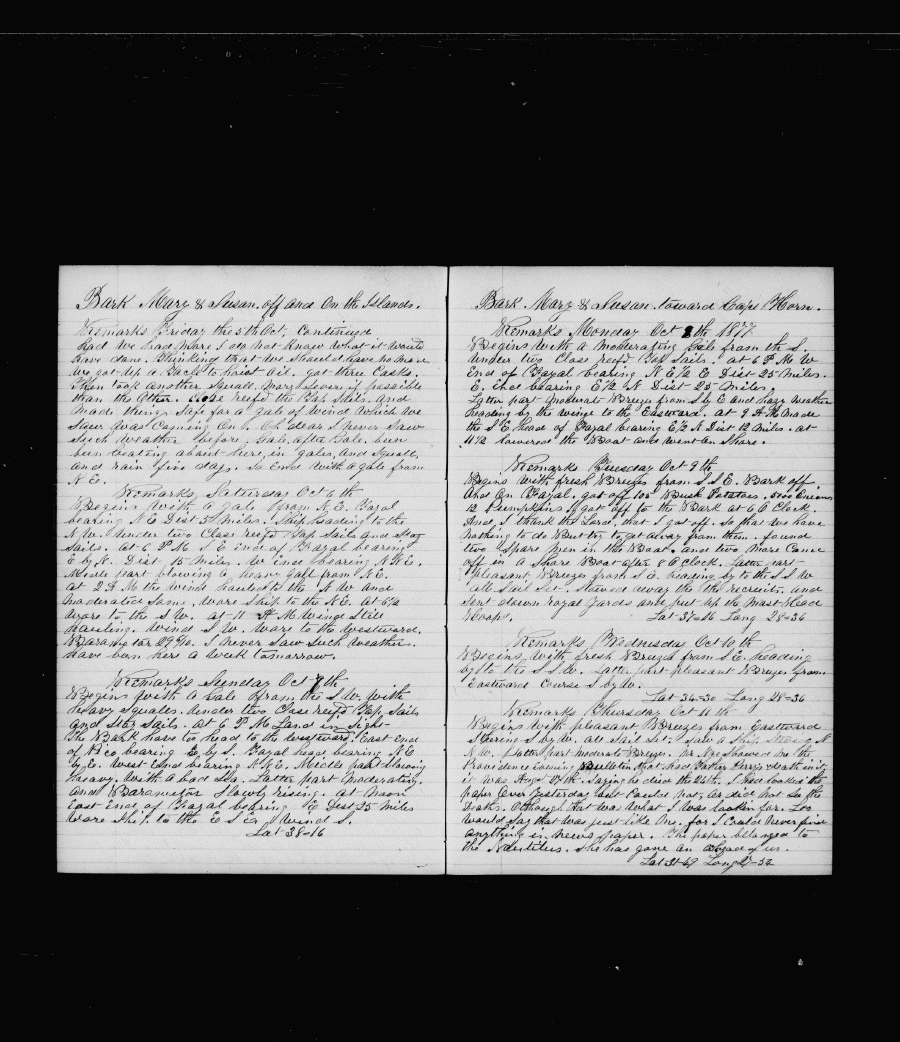 Bark Mary & Susan. off and On the Islands.
Remarks Friday the 5th Oct, Continued
had We had More I do not Know What it Would
have done. Thinking that We Should have no more
We got up a Cask to hoist Oil. got three Casks.
Then took another Squall, more Severe if possible
than the Other. Close reefd the Top Sails. and
Made things Safe for a gale of Wind Which We
Saw Was Coming On. Oh dear I never Saw
Such Weather before, Gale after Gale. been
been beating about here, in gales, And Squalls
and rain five days. So Ends With a gale from
N E.
Remarks Saturday Oct 6 th
Begins With a gale from N. E. Fayal
bearing N E Dist 5 Miles. Ship heading to the
N W. Under two Close reefd Top Sails and Stay
Sails. At 6 P M S E end of Fayal bearing
E by N. Dist 15 Miles. W End bearing N N E.
Middle part blowing a heavy gale from N E.
at 2 A M the Wind hauled to the N W and
Moderated Some, Wore Ship to the N E. at 6 1/2
Wore to the S W. at 11 A M Wind Still
hauling. Wind S W. Wore to the Westward.
Barameter 29 40. I never Saw Such Weather.
have been here a Week tomorrow.
Remarks Sunday Oct 7 th
Begins With a Gale from the S. W. With
heavy Squalls. Under two Close reefd Top Sails
and Stay Sails. At 6 P M Land in Sight
The Bark have to head to the Westward. East end
of Pico bearing E by S. Fayal head bearing N E
by E. West End bearing N N E. Middle part blowing
heavy. With a bad Sea. Latter part Moderating.
And Barameter Slowly rising. at Noon
East End of Fayal bearing E Dist 25 Miles
Wore Ship to the E S E. Wind S.
Lat 38=16
Bark Mary & Susan. toward Cape Horn.
Remarks Monday Oct 8th 1877
Begins With a Moderating Gale from the S.
Under two Close reefd Top Sails. at 6 P M W
End of Fayal bearing N E 1/2 E Dist 25 Miles.
E. End bearing E 1/2 N Dist 25 Miles.
Latter part Moderate Breeze from S by E and hazy Weather
heading by the Wind to the Eastward. at 9 A M Made
the S E head of Fayal bearing E 1/2 N Dist 12 Miles. at
11 1/2 lowered the Boat and Went On Shore.
Remarks Tuesday Oct 9 th
Begins With fresh Breezes from S S E. Bark off
And On Fayal. got off 100 Bush Potatoes. 5000 Onions
12 Pumpkins. I got off to the Bark at 6 O Clock.
And I thank the Lord, that I got off. So that we have
Nothing to do But try to get away from them. found
two Spare Men in the Boat. and two More Came
off in a Shore Boat after 8 O Clock. Latter part
pleasant Breezes from S E. heading by to the S S W
All Sail Set. Stowed away the recruits. and
Sent down royal yards and put up the Mast head
Hoops. Lat 37=16 Long 28=36
Remarks Wednesday Oct 10 th
Begins With fresh Breezes from S E. heading
by to the S S W. Latter part pleasant Breezes from
Eastward Course S by W.
Lat 34=30 Long 28=36
Remarks Thursday Oct 11 th
Begins With pleasant Breezes from Eastward
Steering S by W. all Sail Set. Saw a Ship Steering N
N W. Latter part Moderate Breezes. Mr Showed Me the
Providence Evening Bulletin that had Father Perrys death in it
it was Aug 27th. Saying he died the 26th. I had looked the
paper Over Yesterday but Could not, or did not See the
Death. Although that was What I was lookin for. Zoo
Would Say that was just like Me. for I Could Never find
anything in news paper. the paper belonged to
the Nautilus. She has gone on ahead of us.
Lat 31=49 Long 27=32